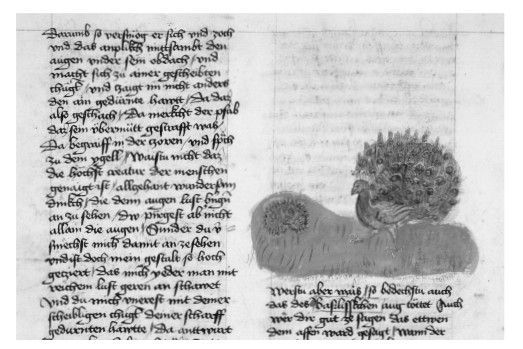 Darumb so versmog er sich vnd zoch
vnd das anplikh mitsambt den
augen vnder sein obdach / vnd
macht sich zu ainer gescheibten
chugl / vnd zaigt im nicht anders
den ain gedürnte hawtt / Da daz
also geschach / Da merkcht der pfab
daz sein übermütt gestrafft was
Da begraiff in der czoren / vnd sprach
zu dem ygell / Waistu nicht daz
die höchst creatur der menschen
genaigt ist / allzehant
die denn augen lust
an zu sehen / ab nicht
allain die augen / Sunder du
smechst mich damit an zesehen
vnd ist doch mein gestalt so hoch
geczirt / das mich yeder man mit
reichem lust geren an schawet
Vnd du mich vnerest mit deiner
scheibligen chugl deiner scharff
gedürnten hawtt / Da antwurt
Werstu aber wais / so bedechstu auch
das des Basilisschen aug töttet Auch
wer dir gut ze sagen das ettwen
dem affen ward gesagt / Wann der